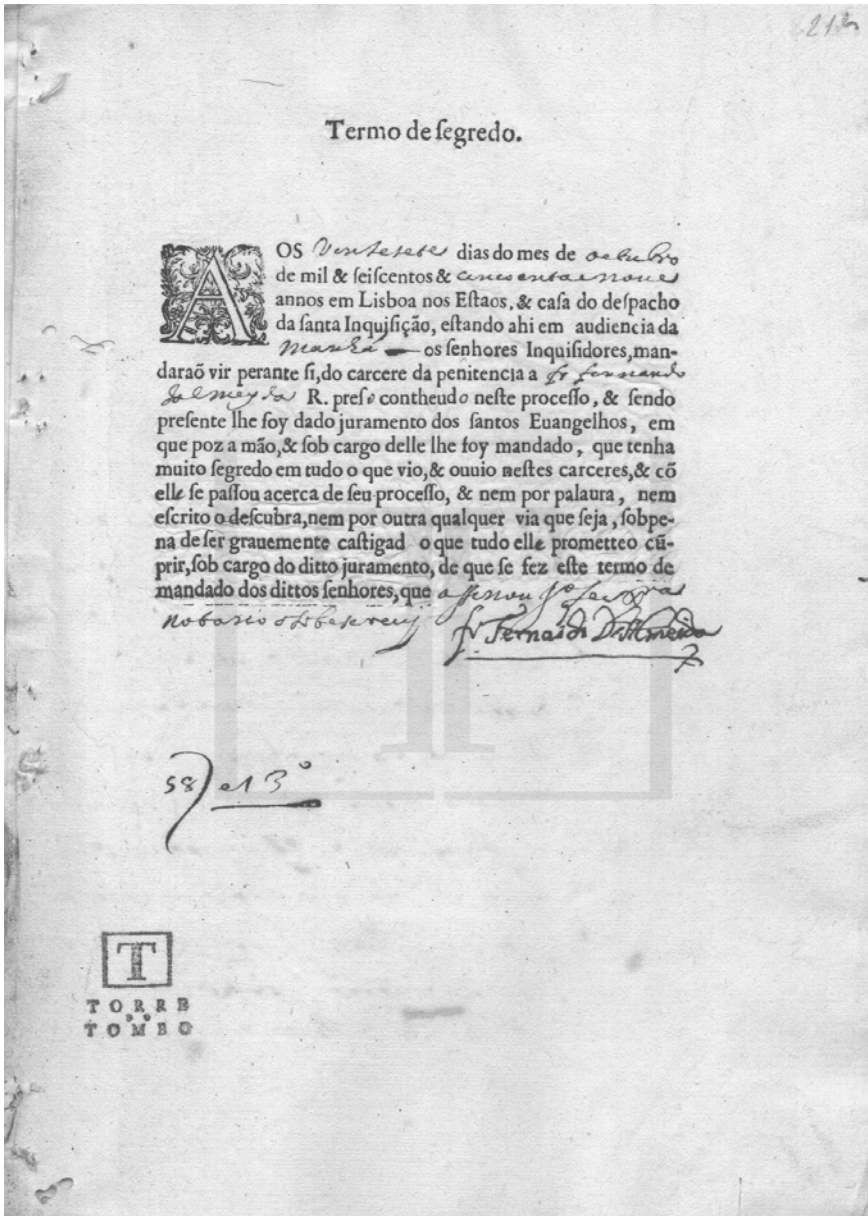 Termo de ſegredo.
AOS Vinteſete dias do mes de octubro
de mil & ſeiſcentos & cincoenta e noue
annos em Lisboa nos Eſtaos, & caſa do deſpacho
da ſanta Inquiſição, eſtando ahi em audiencia da
manhã os ſenhores Inquiſidores, man-
daraõ vir perante ſi, do carcere da penitencia a fr fernando
dalmeyda R. preſo contheudo neſte proceſſo, & ſendo
preſente lhe foy dado juramento dos ſantos Euangelhos, em
que poz a mão, & ſob cargo delle lhe foy mandado, que tenha
muito ſegredo em tudo o que vio, & ouuio neſtes carceres, & cõ
elle ſe paſſou acerca de ſeu proceſſo, & nem por palaura, nem
eſcrito o deſcubra, nem por outra qualquer via que ſeja, ſobpe-
na de ſer grauemente caſtigad o que tudo elle prometteo cũ-
prir, ſob cargo do ditto juramento, de que ſe fez eſte termo de
mandado dos dittos ſenhores, que aſsinou
notario o ſobescreuj
fr Fernãdi D'Almeida
58) et 3º
T
TORRE
DO
TOMBO